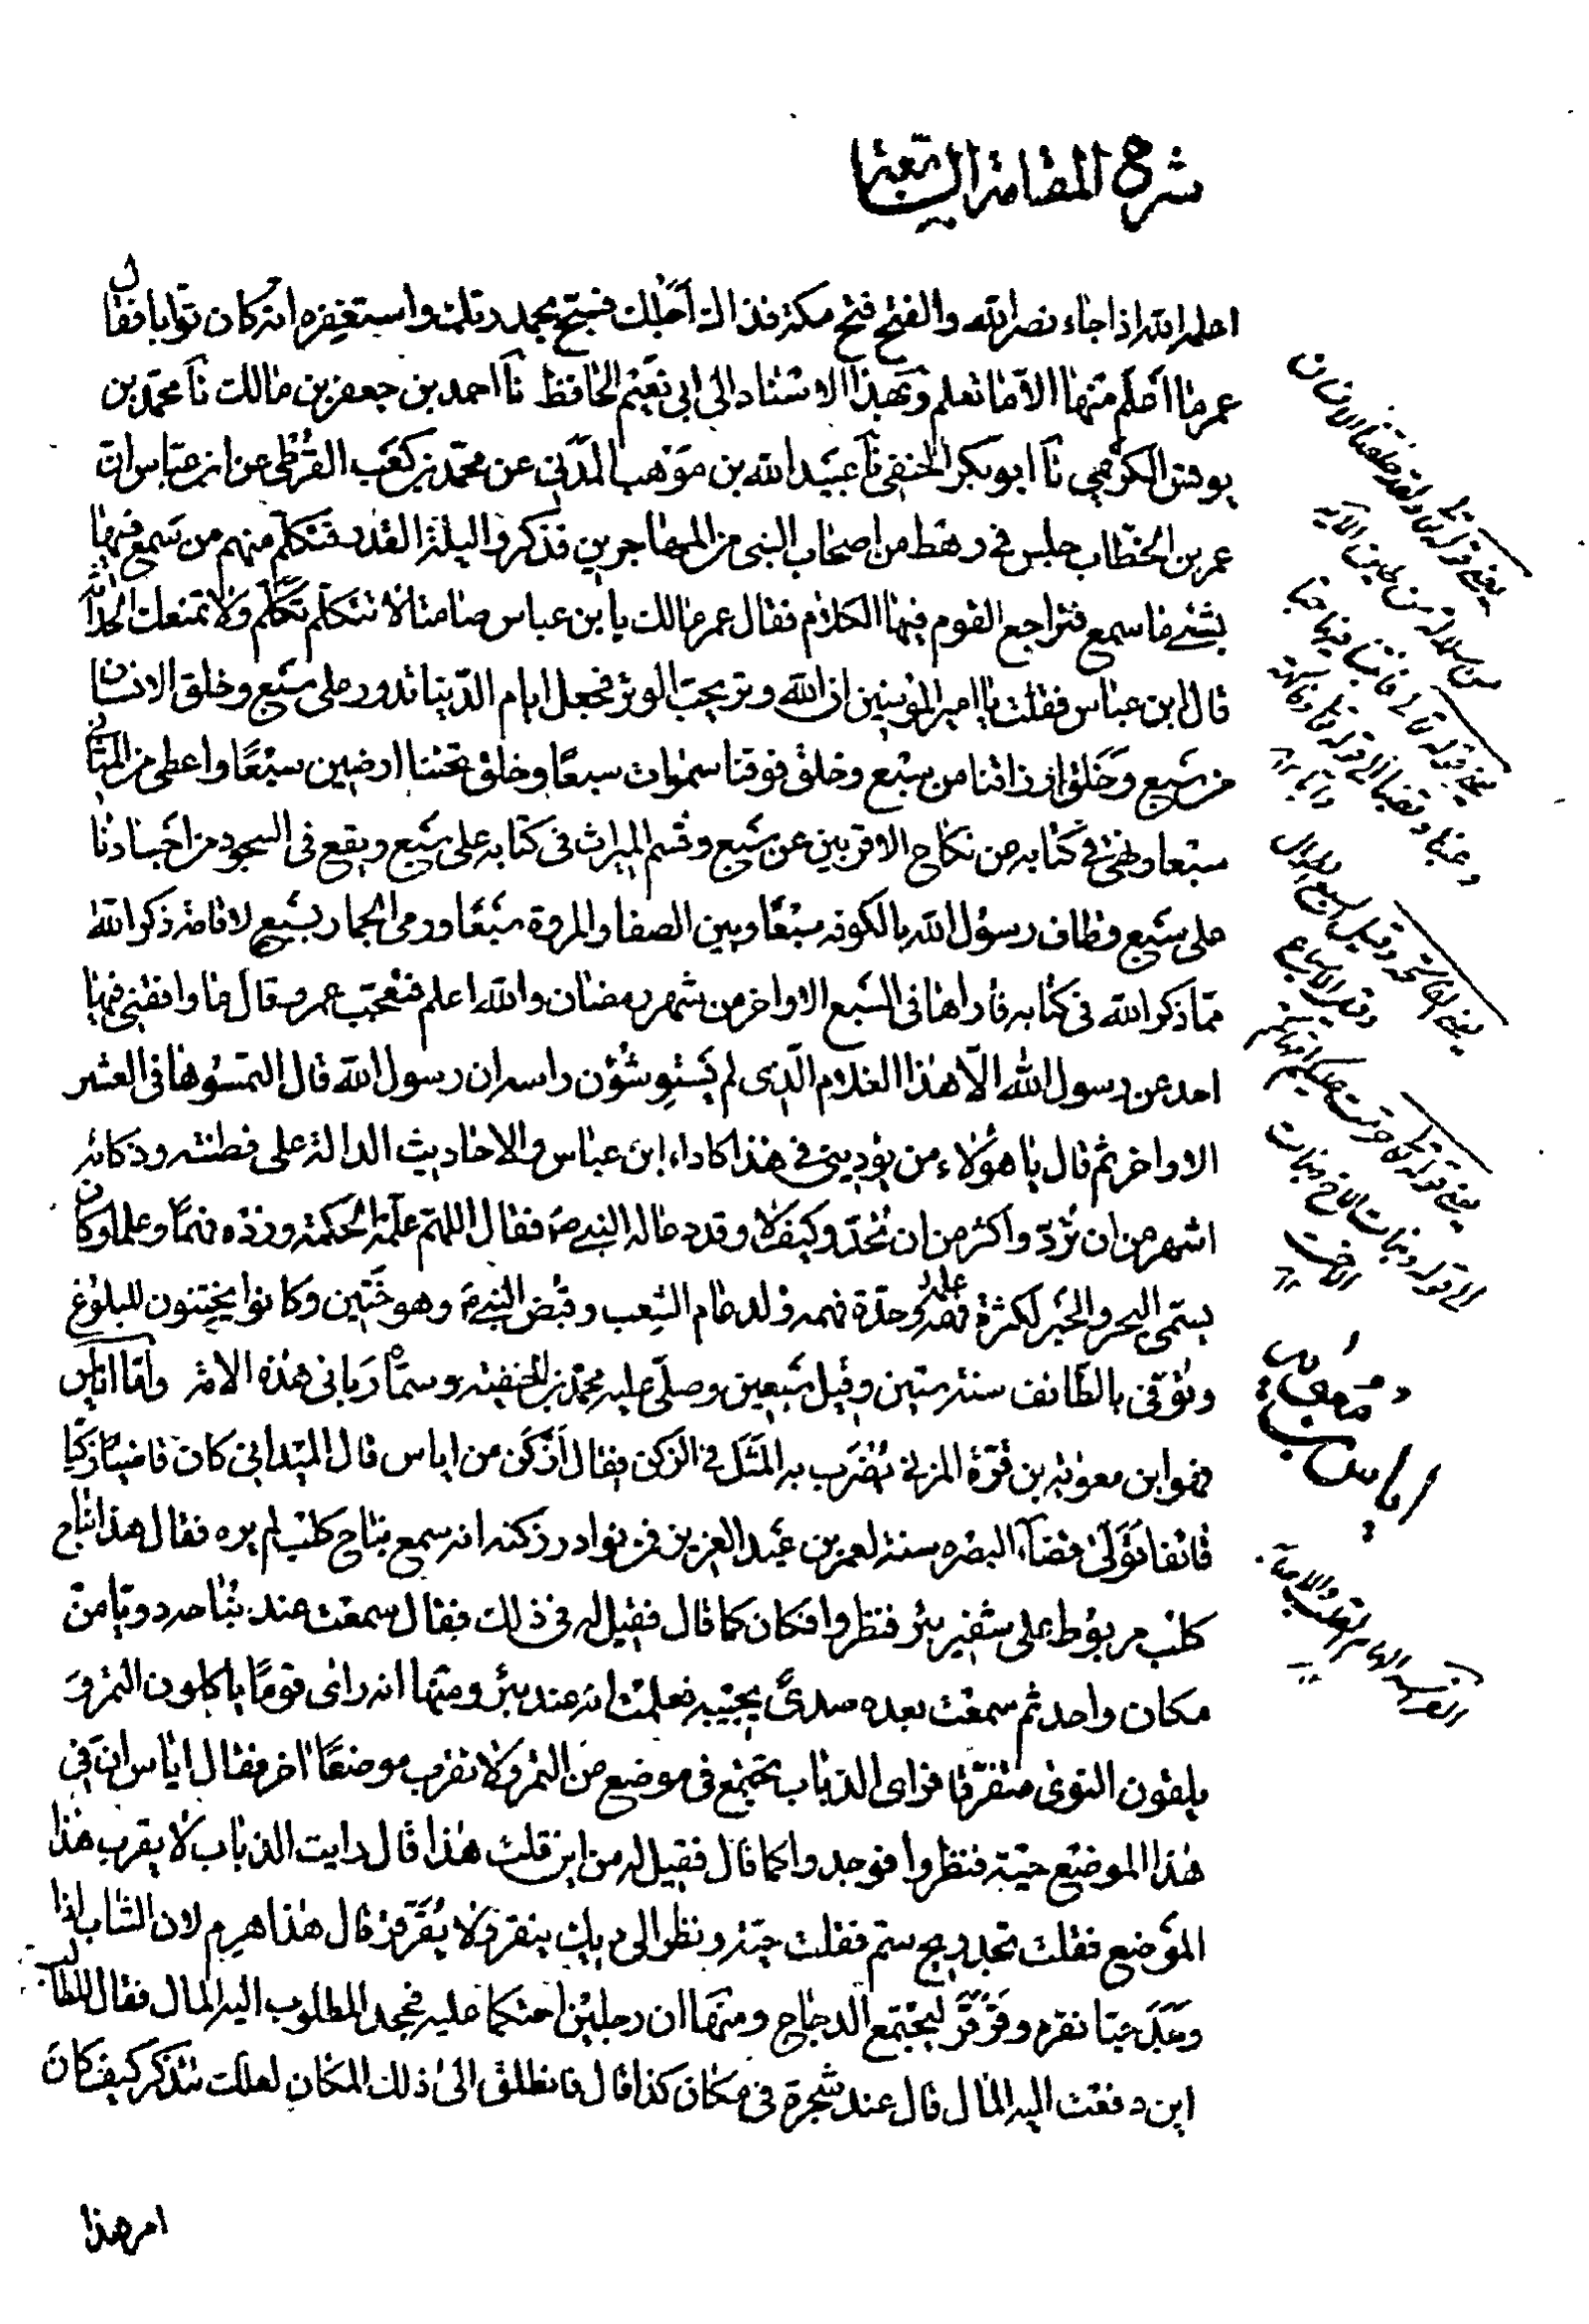 شرح المقامة السابعة
اعلمه الله اذا جاء نصر الله والفتح فتح مكة فذاك اجلك فسبح بحمد ربك واستغفره انه كان توابا فقال
عمر ما اعلم منها الا ما تعلم وبهذا الاسناد الى ابي نعيم الحافظ نا احمد بن جعفر بن مالك نا محمد بن
يونس الكديمي نا ابو بكر الحنفي نا عبيد الله بن موهب المدني عن محمد بن كعب القرظي عن ابن عباس ان
عمر بن الخطاب جلس في رهط من اصحاب النبي من المهاجرين فذكروا ليلة القدر فتكلم منهم من سمع فيها
بشئ مما سمع فتراجع القوم فيها الكلام فقال عمر مالك يا ابن عباس صامتا لا تتكلم تكلم ولا تمنعك الحداثة
قال ابن عباس فقلت يا امير المؤمنين ان الله وتر يحب الوتر فجعل ايام الدنيا تدور على سبع وخلق الانسان
من سبع وخلق ارزاقنا من سبع وخلق فوقنا سموات سبعا وخلق تحتنا ارضين سبعا واعطى من المثاني
سبعا ونهى في كتابه من نكاح الاقربين عن سبع وقسم الميراث في كتابه على سبع ويقع في السجود من اجسادنا
على سبع وطاف رسول الله بالكوفه سبعا وبين الصفا والمروة سبعا ورمى الجمار بسبع لاقامة ذكر الله
مما ذكر الله في كتابه فاراها في السبع الاواخر من شهر رمضان والله اعلم فتعجب عمر وقال ما وافقني فيها
احد عن رسول الله الا هذا الغلام الذي لم يستو شؤن راسه ان رسول الله قال التمسوها في العشر
الاواخر ثم قال يا هؤلاء من يؤديني في هذا كاداء ابن عباس والاحاديث الدالة على فطنته وذكائه
اشهر من ان ترد واكثر من ان تحد وكيف لا وقد دعا له النبي ص فقال اللهم علمه الحكمة وزده فهما وعلما وكان
يسمى البحر والحبر لكثرة علمه وحدة فهمه ولد عام الشعب وقبض النبي ص وهو ختين وكانوا يختنون للبلوغ
وتوفي بالطائف سنة ستين وقيل سبعين وصلى عليه محمد بن الحنفيه وسماه رباني هذه الامة واما اياس
فهو ابن معوية بن قرة المزني يضرب به المثل في الزكن فيقال ازكن من اياس قال الميداني كان قاضيا زكيا
قائفا تولى قضاء البصره سنة لعمر بن عبد العزيز فمن نوادر زكنه انه سمع نباح كلب لم يره فقال هذا نباح
كلب مربوط على شفير بئر فنظروا فكان كما قال فقيل له في ذلك فقال سمعت عند نباحه دويا من
مكان واحد ثم سمعت بعده صدى يجيبه فعلمت انه عند بئر ومنها انه راى قوما ياكلون التمر و
يلقون النوى متفرقا فراى الذباب يجتمع في موضع من التمر ولا تقرب موضعا اخر فقال اياس ان في
هذا الموضع حية فنظروا فوجدوا كما قال فقيل له من اين قلت هذا قال رايت الذباب لا يقرب هذا
الموضع فقلت تجد ريح سم فقلت حية ونظر الى ديك ينقر ولا يقرقر قال هذا هرم لان الشاب اذا
وجد حبا نقره وقرقر ليجتمع الدجاج ومنها ان رجلين احتكما عليه فجحد المطلوب اليه المال فقال للطالب
اين دفعت اليه المال قال عند شجرة في مكان كذا قال فانطلق الى ذلك المكان لعلك تتذكر كيف كان
امر هذا
يعني قوله تعالى ولقد خلقنا الانسان
من سلالة من طين الآية
يعني قوله تعالى فانبتنا فيها حبا
وعنبا وقضبا الى قوله تعالى وفاكهة
وابا
يعني الفاتحة وقيل السبع الطوال
يعني قوله تعالى حرمت عليكم امهاتكم
الى قوله وبنات الاخ وبنات
الاخت
اياس بن
معوية